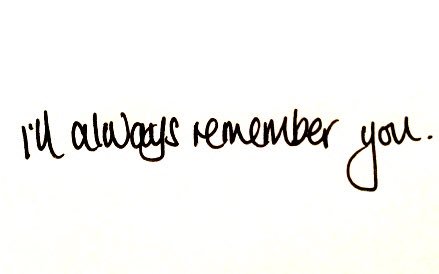 I'll always remember you.